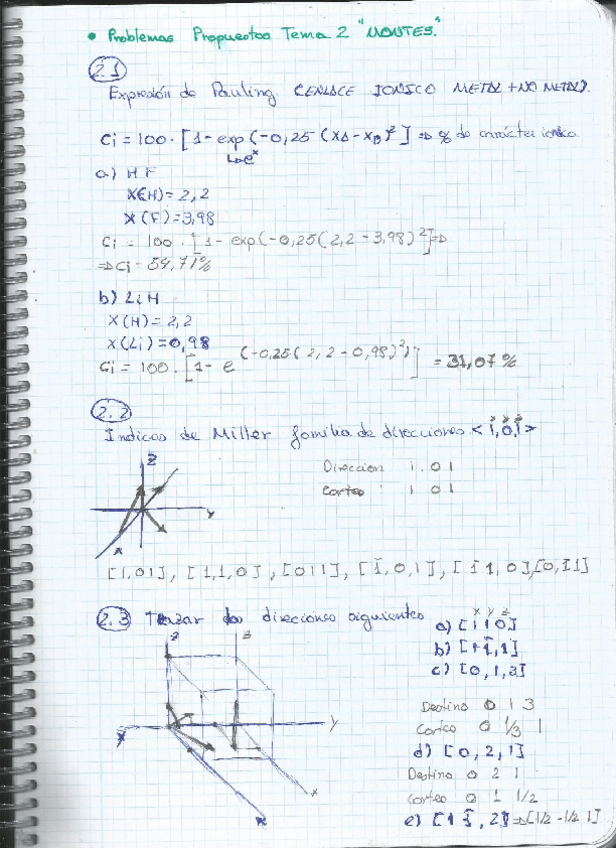 • Problemas Propuestos Tema 2 "MONTES."
2.1
Expresión de Pauling. CENLACE IONICO METAL + NO METAL).
Ci = 100 · [1 - exp(-0,25 (XA - XB)²] ⇒ % de carácter ionico
↳ eˣ
a) HF
X(H) = 2,2
X(F) = 3,98
Ci = 100 · [1 - exp(-0,25(2,2 - 3,98)²] ⇒
⇒ Ci = 54,71%
b) LiH
X(H) = 2,2
X(Li) = 0,98
Ci = 100 · [1 - e^(-0,25(2,2 - 0,98)²)] = 31,07 %
2.2
Indices de Miller familia de direcciones <1,0,1>
x y z
Z
Y
X
Direccion 1 0 1
Cortes 1 0 1
[1,01], [1,1,0], [011], [1̄,0,1], [1̄1,0], [0,1̄1]
2.3 Trazar las direciones siguientes
x y z
a) [110]
c) [0,1,3]
Destino 0 1 3
Cortes 0 1/3 1
d) [0,2,1]
Destino 0 2 1
Cortes 0 1 1/2
e) [1 1̄,2] ⇒ [1/2 -1/2 1]
Z
Y
X